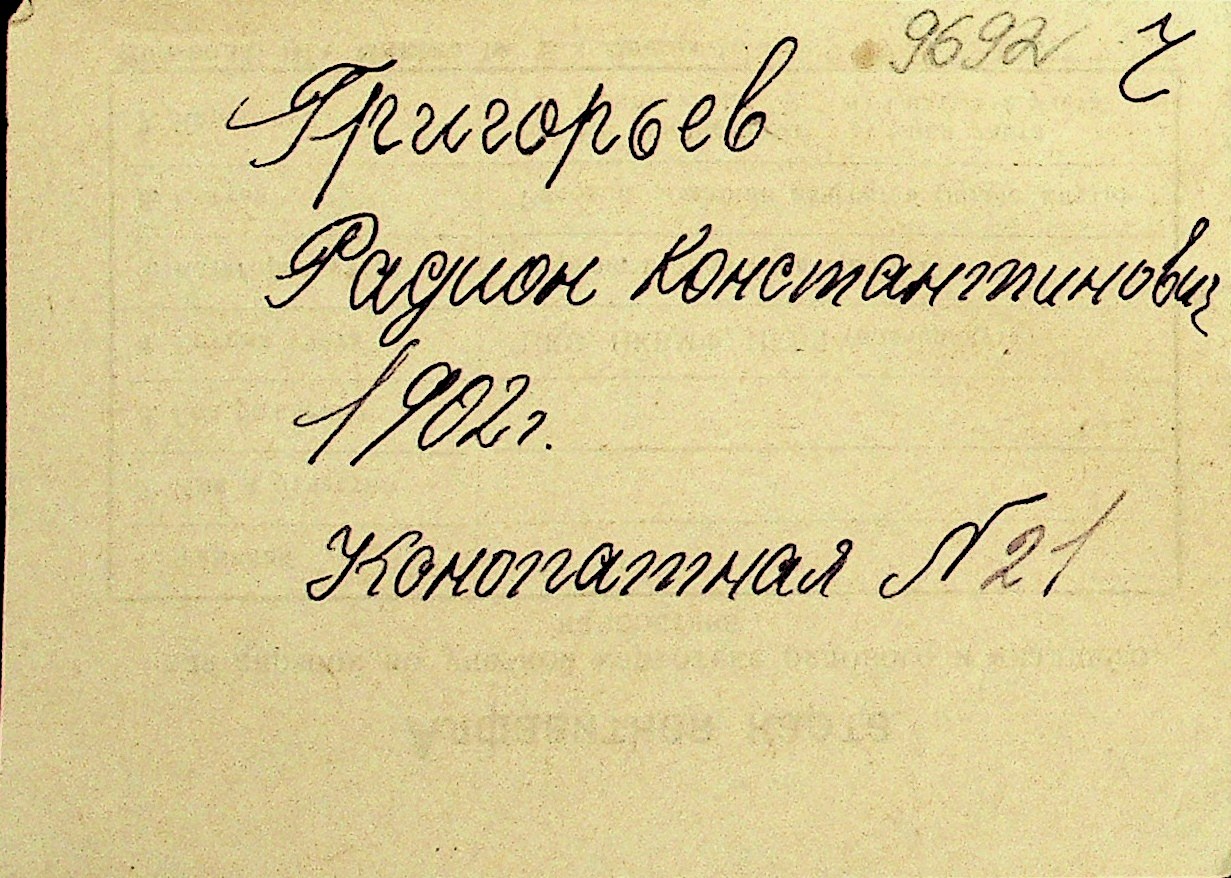 9692 ч
Григорьев
Радион Константинович
1902г.
Конопатная №21